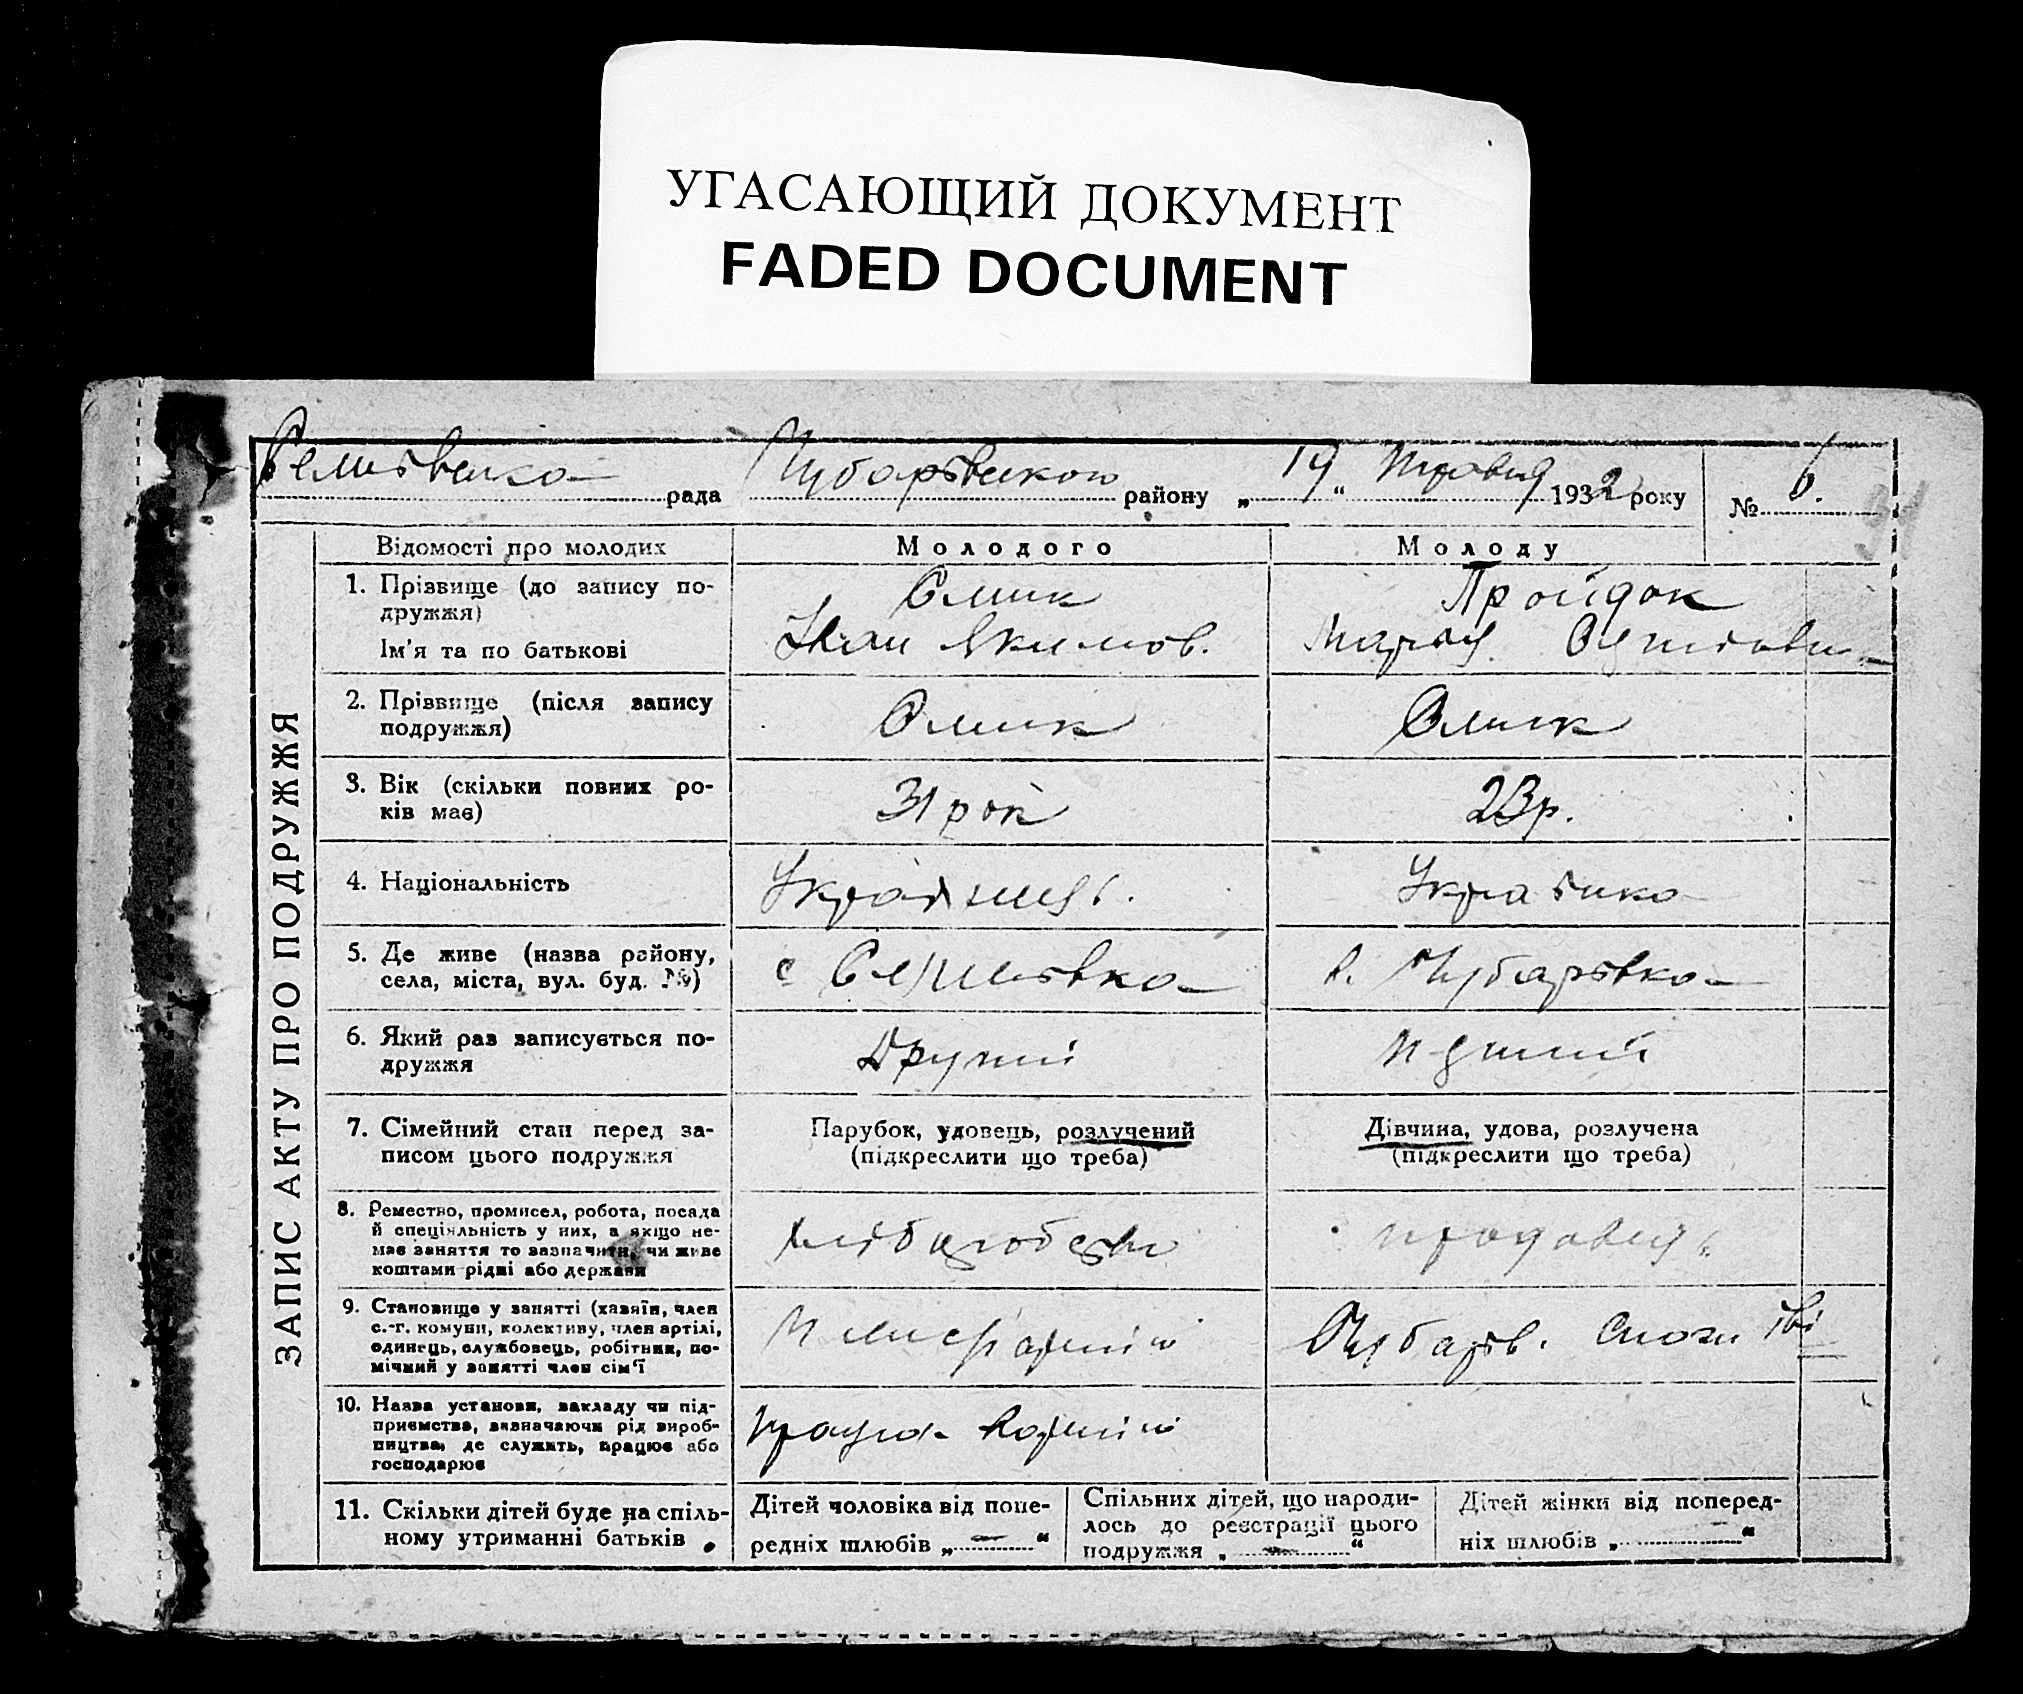 УГАСАЮЩИЙ ДОКУМЕНТ
FADED DOCUMENT
рада Чубарівського району „ 19 “ травня 1932 року № 6.
31
ЗАПИС АКТУ ПРО ПОДРУЖЖЯ
Відомості про молодих
Молодого
Молоду
1. Прізвище (до запису по-
дружжя)
Ім'я та по батькові
Омик
Іван Якимов.
Пройдок
Марія
2. Прізвище (після запису
подружжя)
Омик
Омик
3. Вік (скільки повних ро-
ків має)
31 рок
23 р.
4. Національність
Українець.
Українка
5. Де живе (назва району,
села, міста, вул. буд. №)
с
с. Чубарівка
6. Який раз записується по-
дружжя
Другий
Перший
7. Сімейний стан перед за-
писом цього подружжя
Парубок, удовець, розлучений
(підкреслити що треба)
Дівчина, удова, розлучена
(підкреслити що треба)
8. Ремество, промисел, робота, посада
й спеціяльність у них, а якщо не-
має заняття то зазначити, чи живе
коштами рідні або держави
хлібороб
продавець
9. Становище у занятті (хазяїн, член
с.-г. комуни, колективу, член артілі,
одинець, службовець, робітник, по-
мічний у занятті член сім'ї
Чубарів.
10. Назва установи, закладу чи під-
приємства, зазначаючи рід вироб-
ництва, де служить, працює або
господарює
11. Скільки дітей буде на спіль-
ному утриманні батьків
Дітей чоловіка від попе-
редніх шлюбів „ — “
Спільних дітей, що народи-
лось до реєстрації цього
подружжя „ — “
Дітей жінки від поперед-
ніх шлюбів „ — “